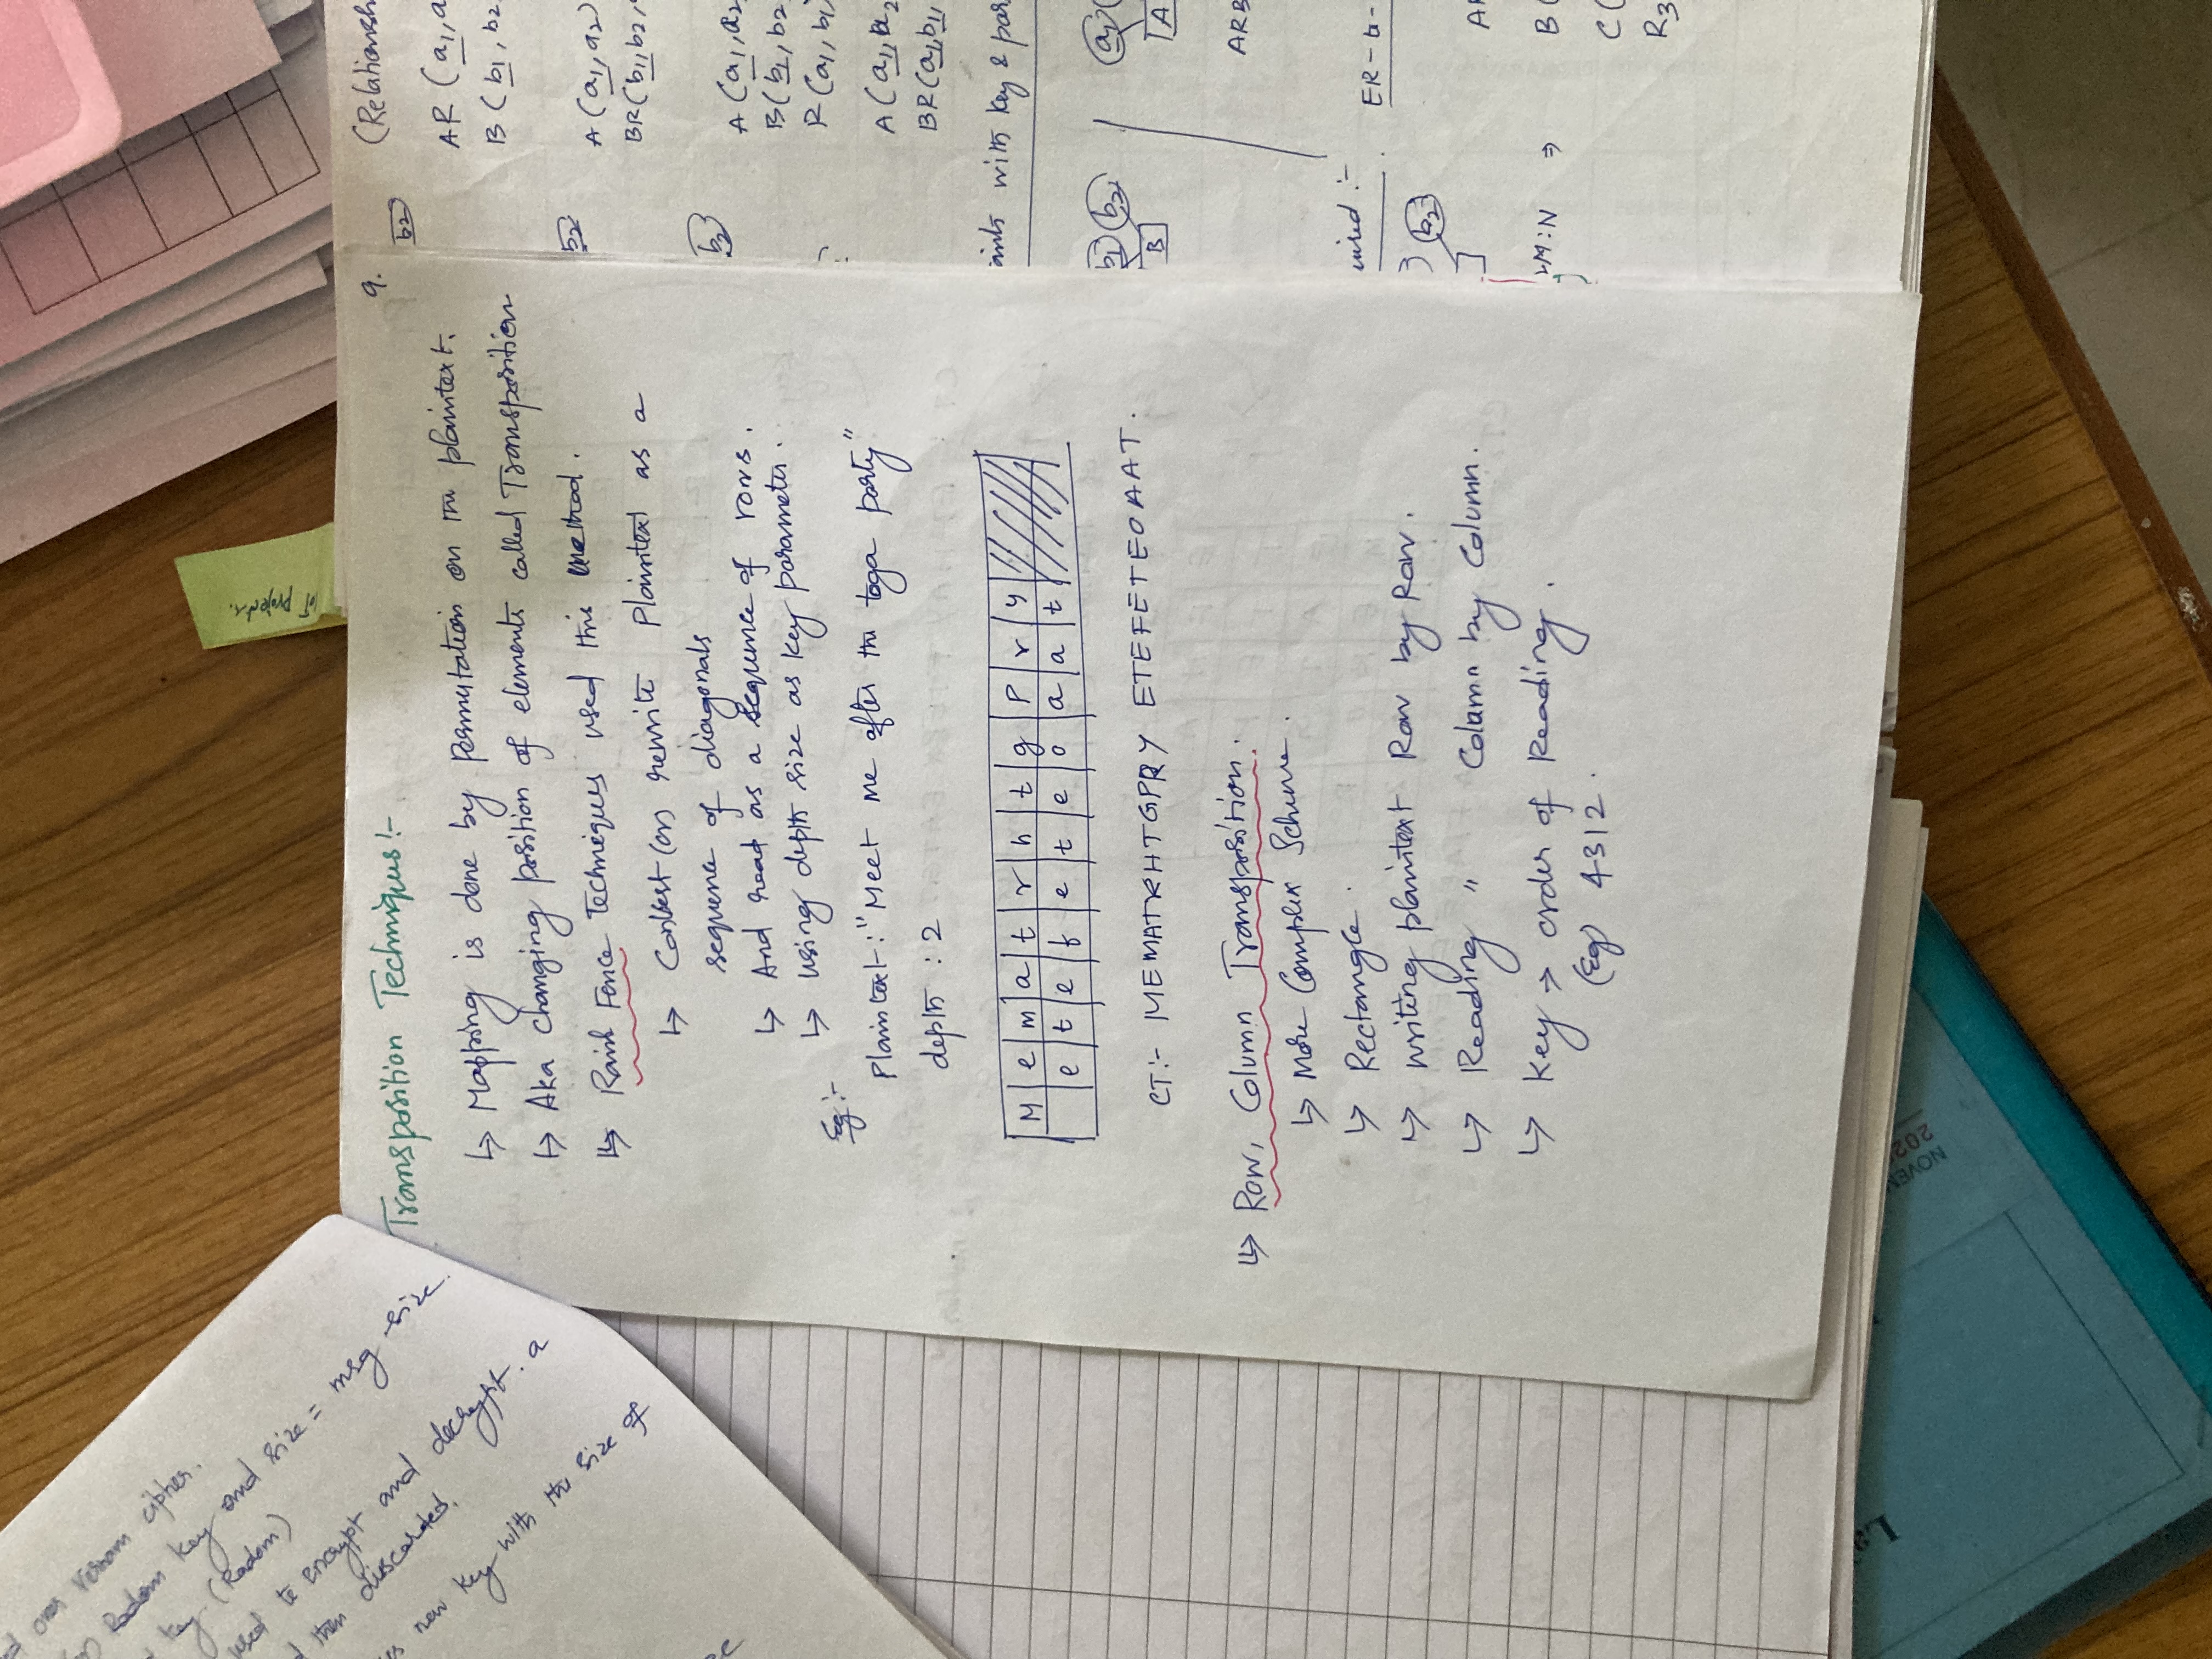 one Vernam cipher.
Radom key and size = msg size.
key (Radom)
used to encrypt and decrypt. a
then discarded.
new key with the size of
IoT projects.
9.
Transposition Techniques:-
↳ Mapping is done by Permutation on the plaintext.
↳ Aka changing position of elements called Transposition
↳ Rail Fence Techniques used this method.
↳ (or) rewrite Plaintext as a
sequence of diagonals
↳ And read as a sequence of rows.
↳ using depth size as key parameter.
Eg:-
Plaintext: "Meet me after the toga party"
depth : 2
M e m a t r h t g P r y
e t e f e t e o a a t
CT:- MEMATRHTGPRY ETEFETEOAAT.
↳ Row, Column Transposition.
↳ More Complex Scheme.
↳ Rectangle.
↳ writing plaintext Row by Row.
↳ Reading " Column by Column.
↳ Key → order of Reading.
(Eg) 4312.
(Relationsh
b2
AR (a1, a
B (b1, b2
b2
A (a1, a2)
BR (b1, b2,
b2
A (a1, a2
B (b1, b2
R (a1, b1)
A (a1, a2
BR (a1, b1,
aints with key & par
b1 b2
B
a1
A
ARB
uired :-
ER-to-
b2
M:N ⇒
B (
C (
R3
NOVEM
202